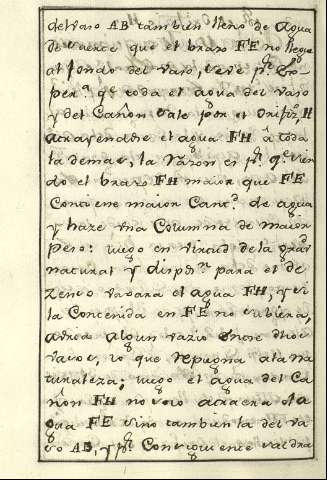 del vaso AB tambien lleno de Agua
de suerte que el braso FE no llegue
al fondo del vaso, se ve pr. Es-
per.a q̃ toda el agua del vaso
y del Cañon sale por el Orifiz.o H
atrayendose el agua FH â toda
la demas, la razon es pr. q̃ sien
do el braso FH maior que FE
Contiene maior Cant.d de agua
y haze vna Columna de maior
peso: luego en virtud de la grav
natural y dispo.n para el de
zenso vaxara el agua FH, y si
la Contenida en FE no subiera,
avria algun vazio entre dhos
vasos, lo que repugna a la na
turaleza; luego el agua del Ca
ñon FH no solo atraera el a
gua FE sino tambien la del va
so AB, y pr. Consiguiente saldra